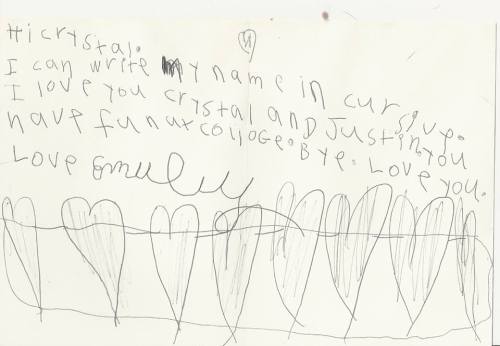 Hi crystal.
I can write my name in cursive.
I love you crystal and Justin. you
have fun at colloge. Bye. Love you.
Love Emily